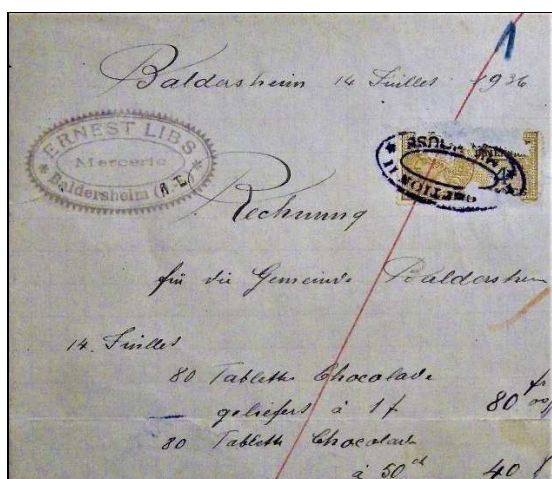 Baldersheim 14 Juilles 1936
ERNEST LIBS
Mercerie
Baldersheim (H.-R.)
Rechnung
für die Gemeinde Baldersheim
14. Juilles
80 Tablette Chocolade
geliefert à 1 f 80 fr
80 Tablette Chocolade
à 50 ct 40 f